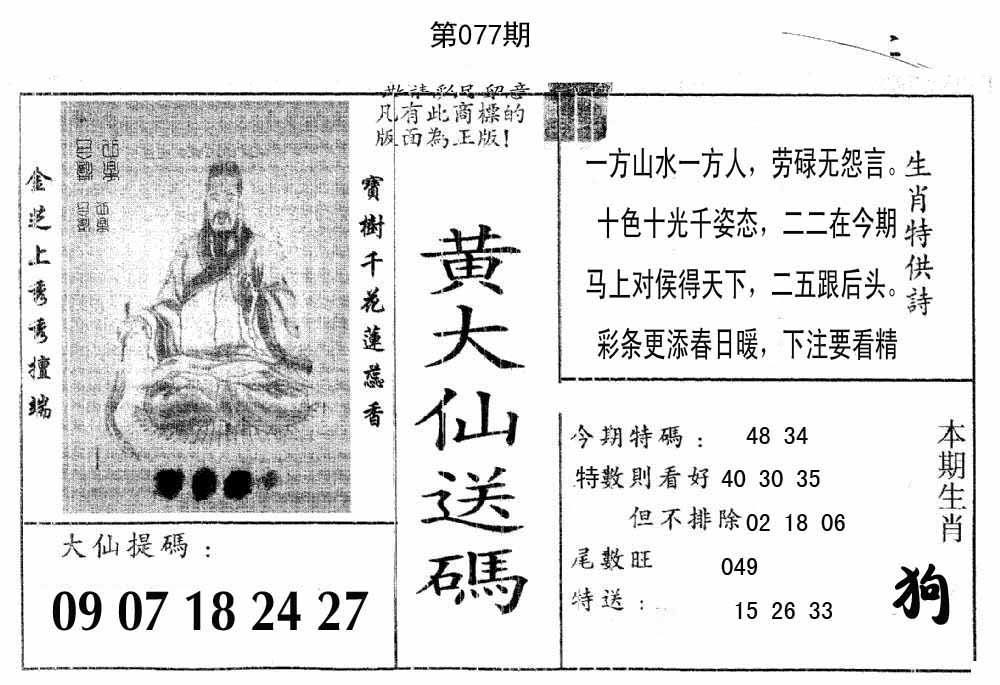 第077期
敬請彩民留意
凡有此商標的
版面為正版!
金芝上秀秀擅端
寶樹千花蓮蕊香
黄大仙送碼
生肖特供詩
一方山水一方人，劳碌无怨言。
十色十光千姿态，二二在今期
马上对侯得天下，二五跟后头。
彩条更添春日暖，下注要看精
大仙提碼：
09 07 18 24 27
今期特碼：48 34
特數則看好 40 30 35
但不排除 02 18 06
尾數旺 049
特送：15 26 33
本期生肖
狗